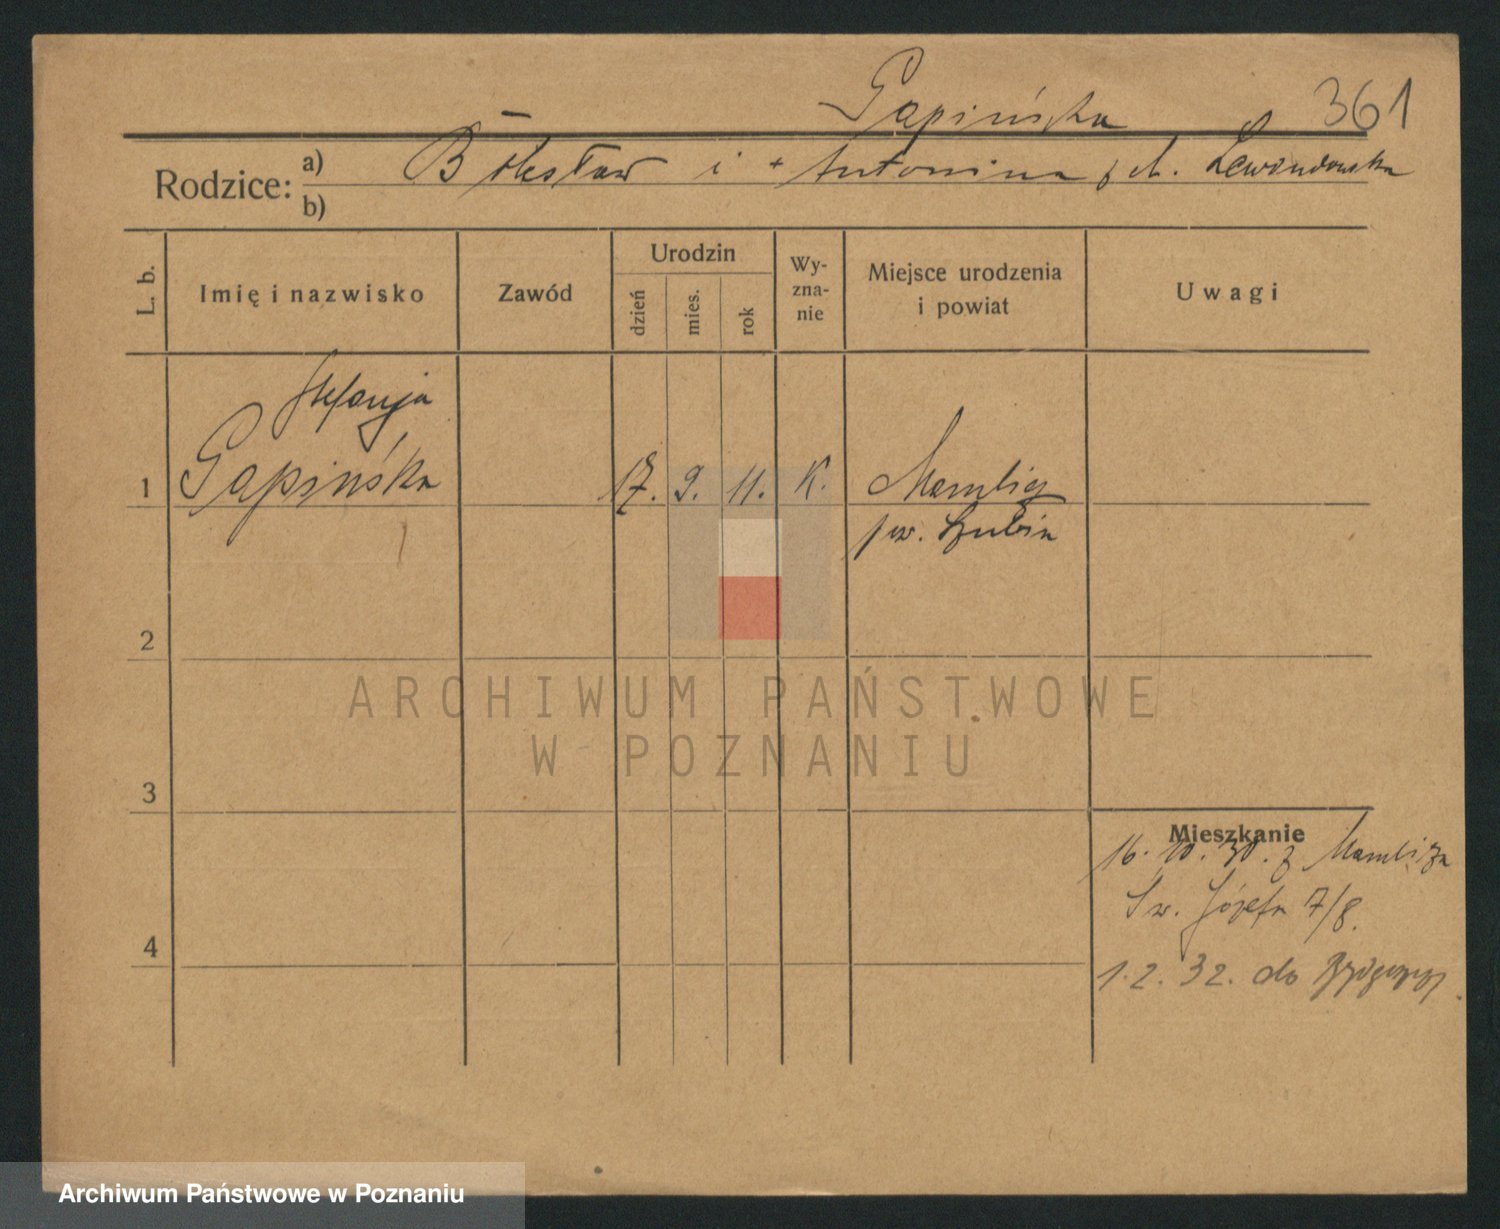 Gapińska 361
Rodzice: a) Bolesław i + Antonina z d. Lewandowska
b)
L. b. Imię i nazwisko Zawód Urodzin dzień mies. rok Wyznanie Miejsce urodzenia i powiat Uwagi
Stefanja
1 Gapińska 17. 9. 11. K. Mamlicz
pow. Szubin
2
ARCHIWUM PAŃSTWOWE
W POZNANIU
3
Mieszkanie
16. 10. 30. z Mamlicza
Św. Józefa 7/8.
4
1. 2. 32. do Bydgoszczy.
Archiwum Państwowe w Poznaniu